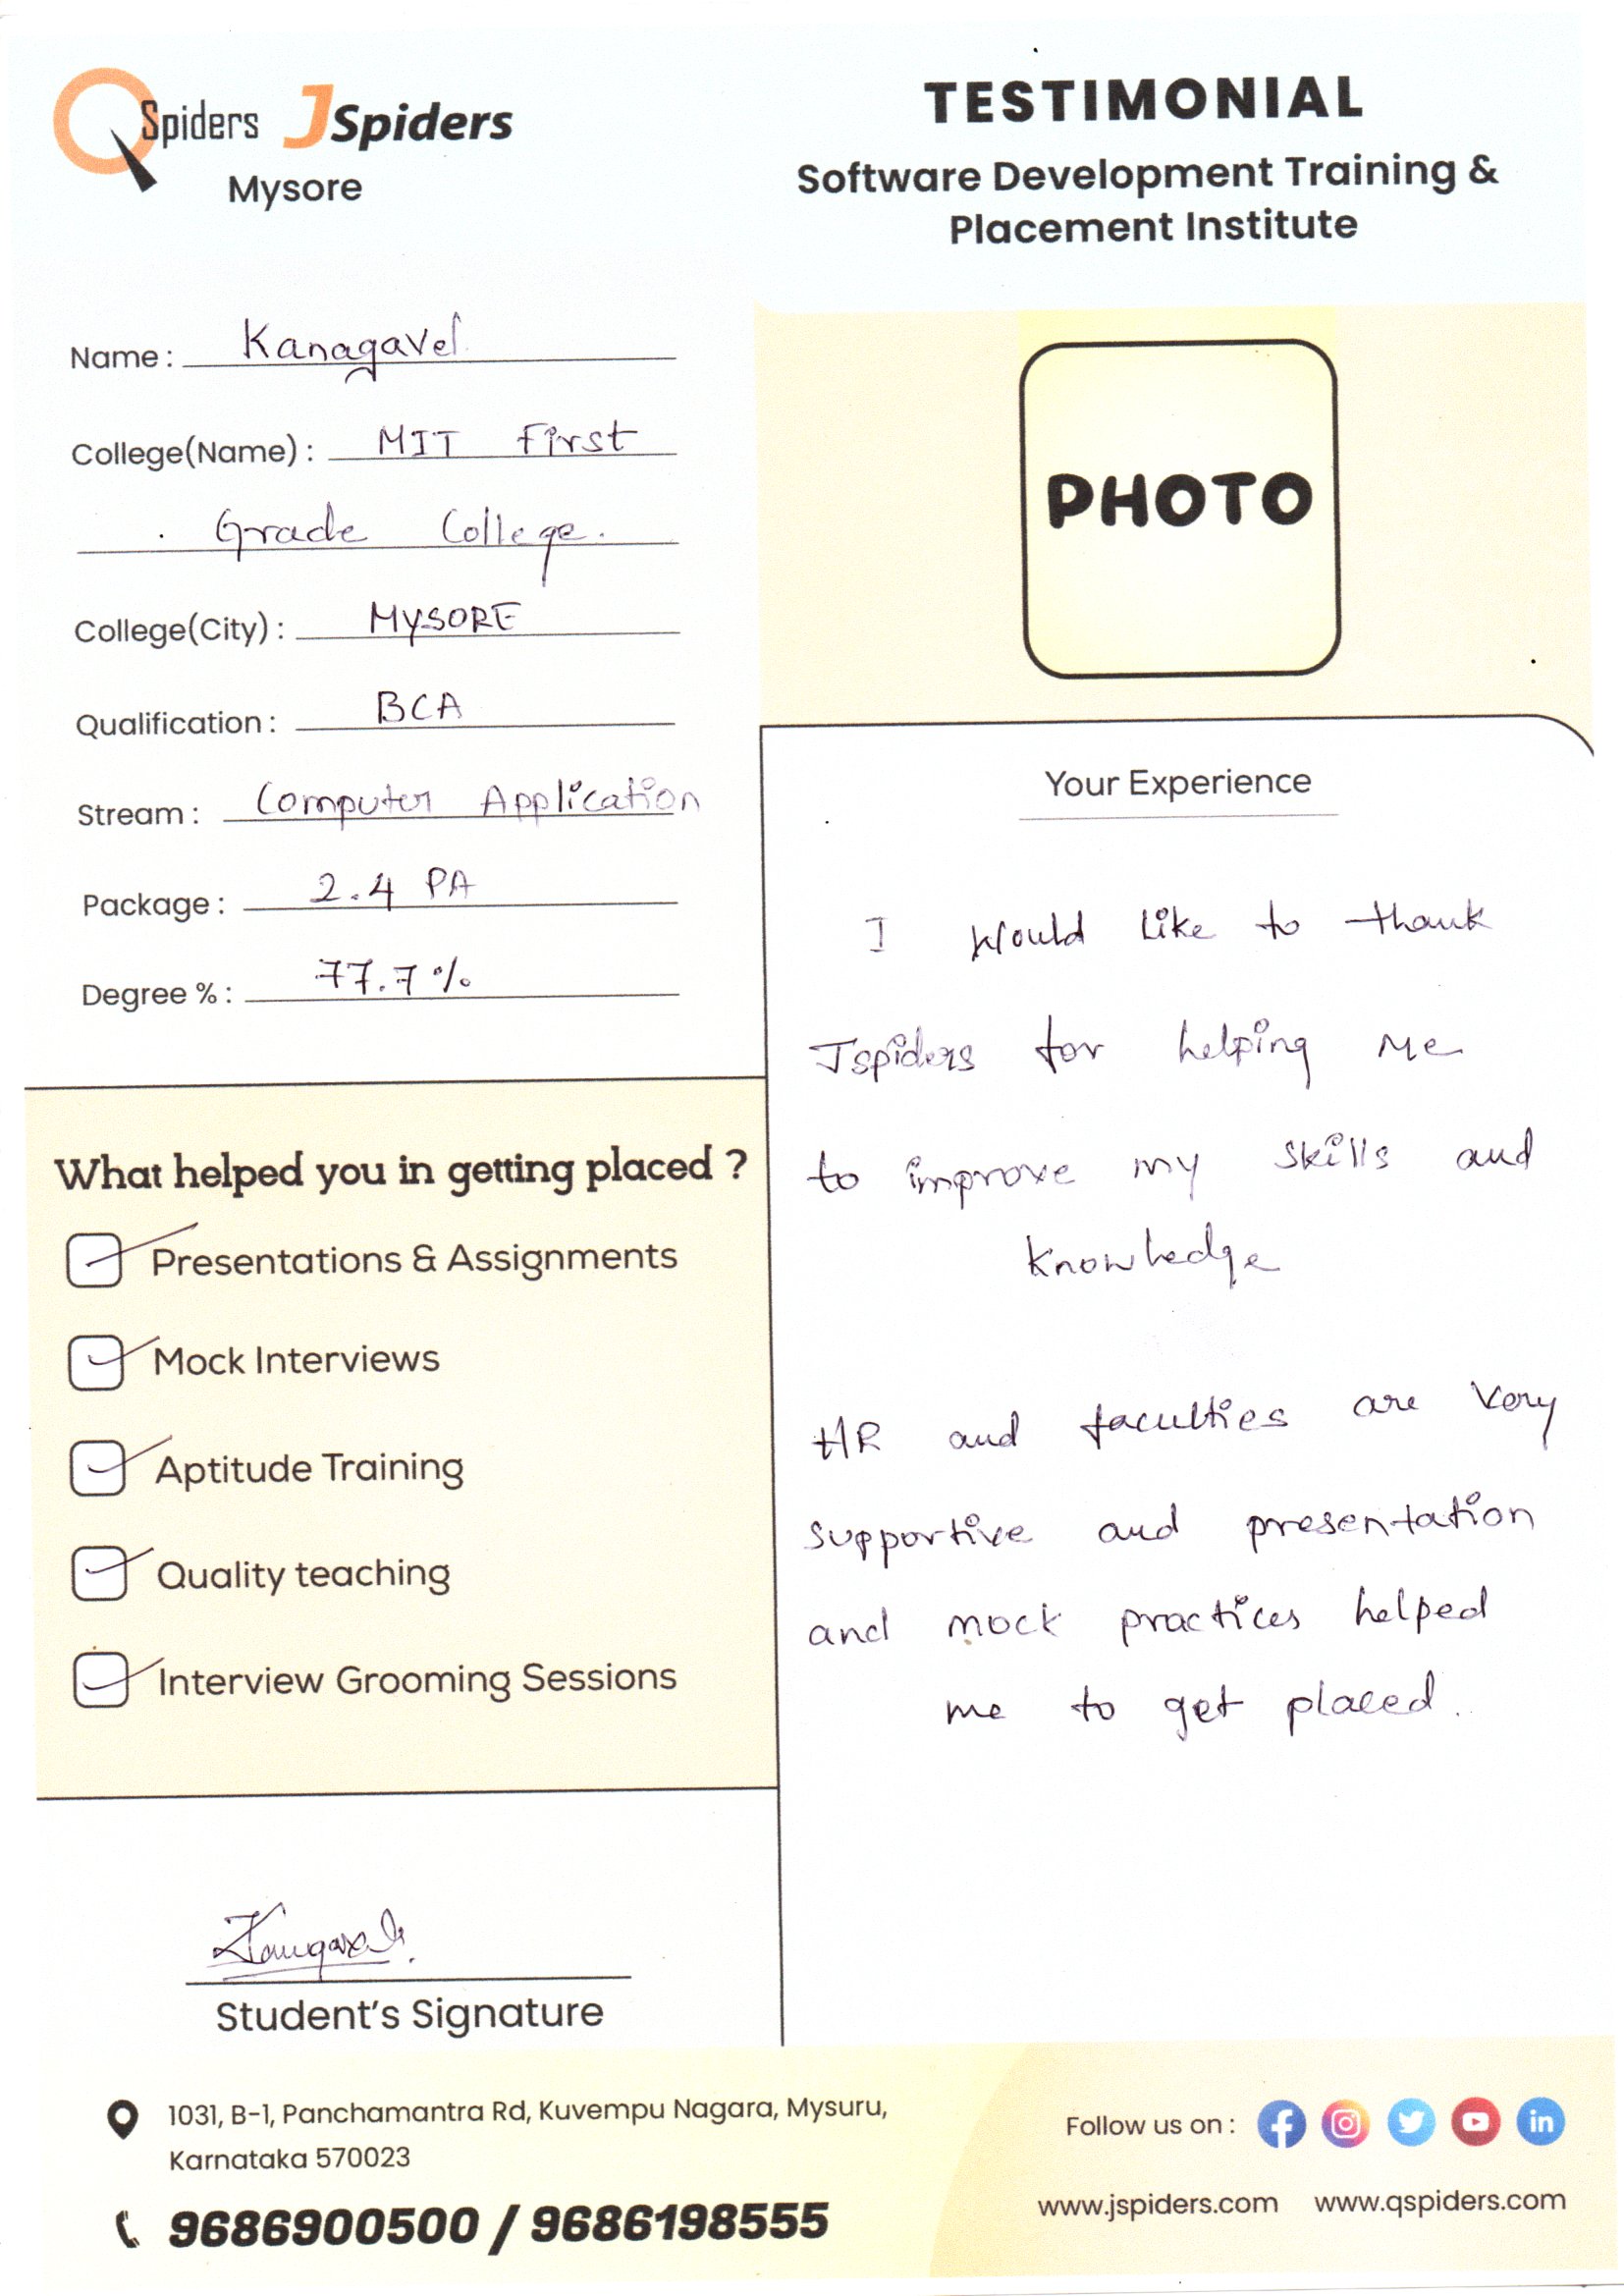 QSpiders JSpiders
Mysore
TESTIMONIAL
Software Development Training &
Placement Institute
Name : Kanagavel
College(Name) : MIT First
Grade College.
College(City) : MYSORE
Qualification : BCA
Stream : Computer Application
Package : 2.4 PA
Degree % : 77.7%
PHOTO
What helped you in getting placed ?
Presentations & Assignments
Mock Interviews
Aptitude Training
Quality teaching
Interview Grooming Sessions
Student's Signature
Your Experience
I would like to thank
Jspiders for helping me
to improve my skills and
knowledge
HR and faculties are very
supportive and presentation
and mock practices helped
me to get placed.
1031, B-1, Panchamantra Rd, Kuvempu Nagara, Mysuru,
Karnataka 570023
9686900500 / 9686198555
Follow us on :
www.jspiders.com www.qspiders.com